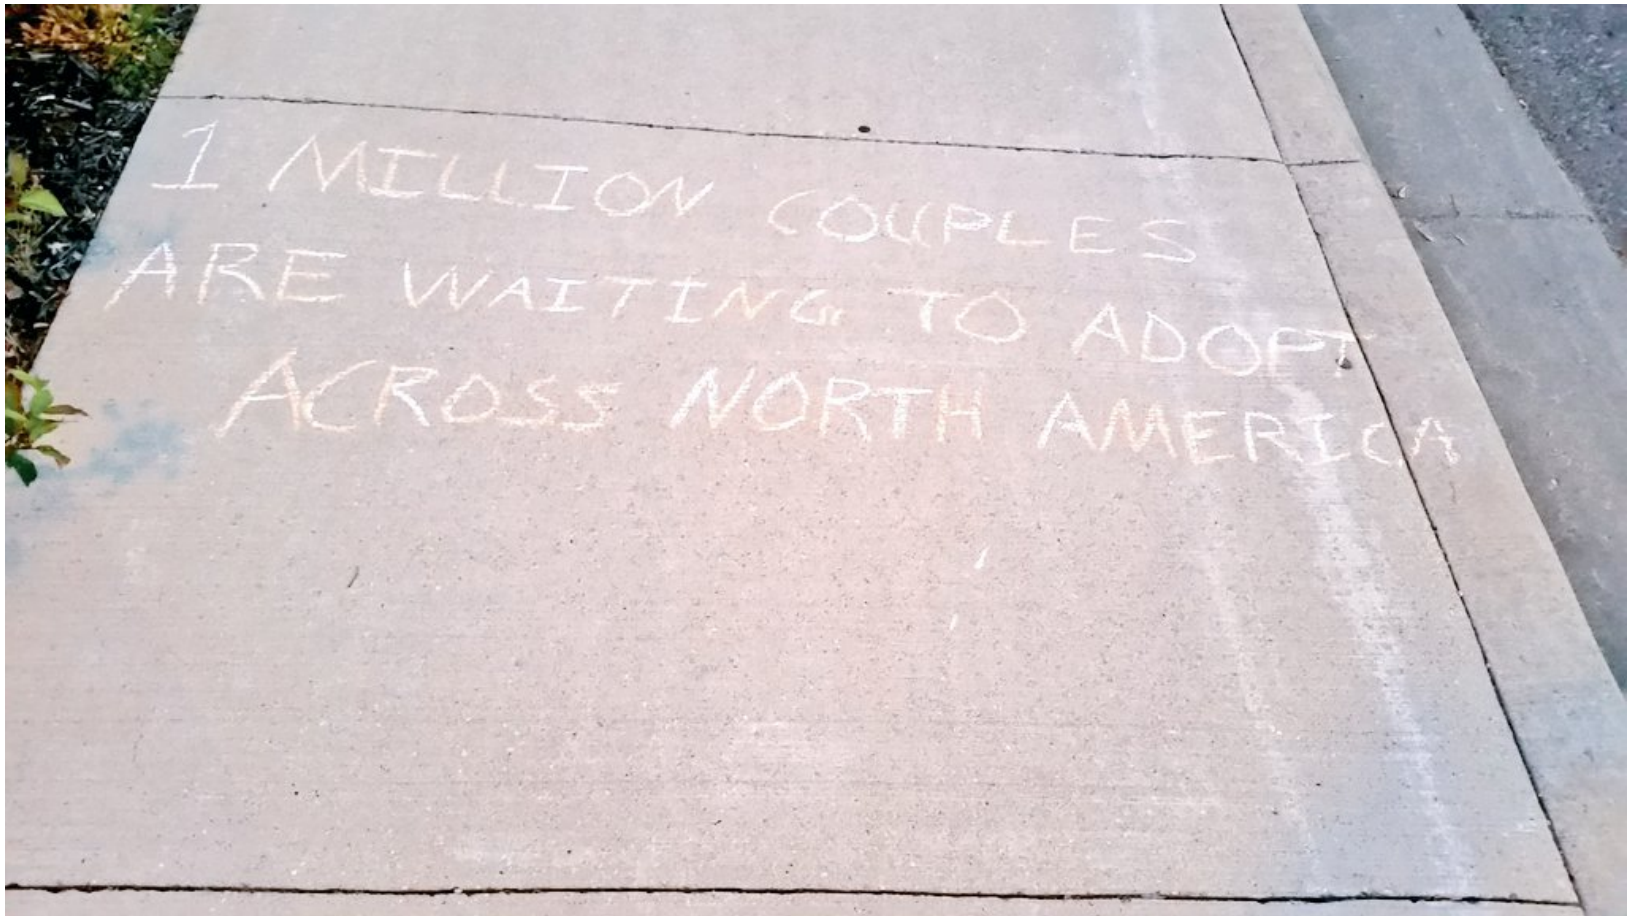 1 MILLION COUPLES
ARE WAITING TO ADOPT
ACROSS NORTH AMERICA